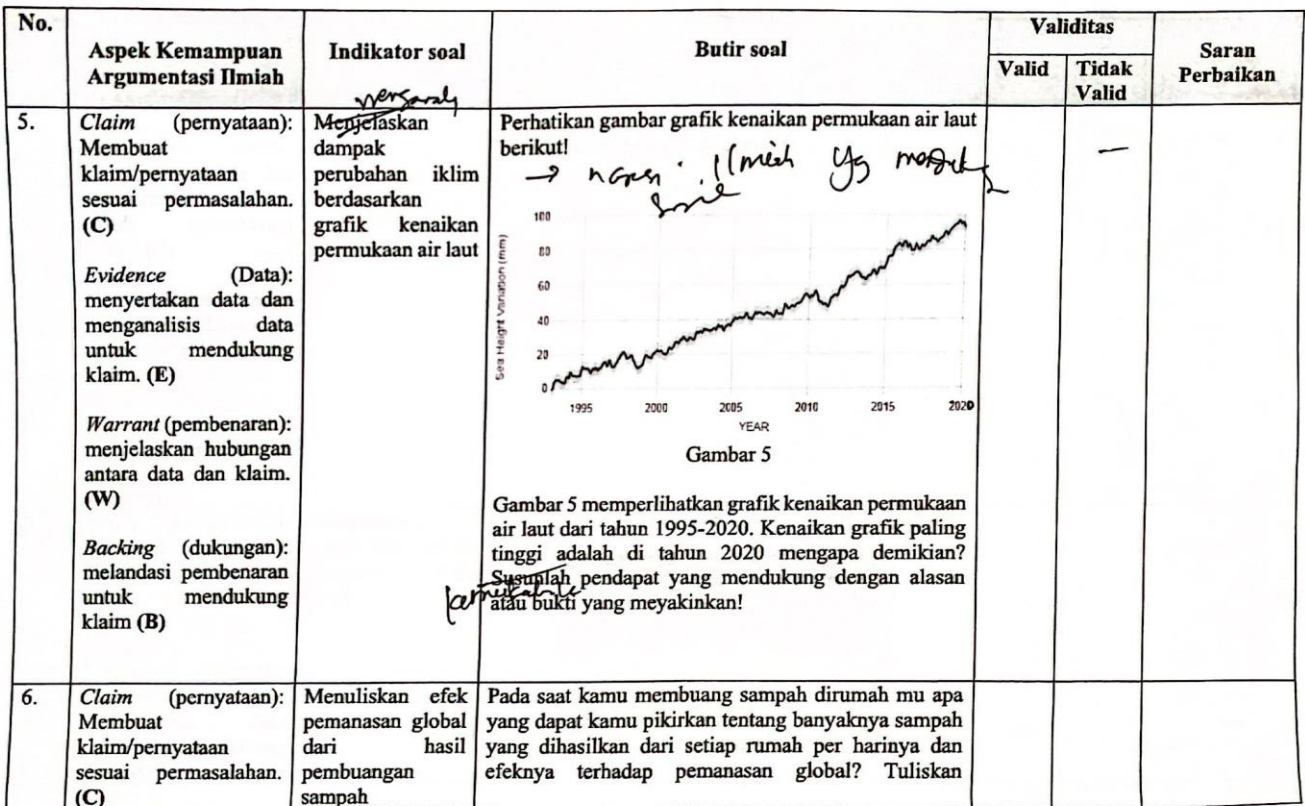 No.
Aspek Kemampuan
Argumentasi Ilmiah
Indikator soal
Butir soal
Validitas
Valid
Tidak
Valid
Saran
Perbaikan
5.
Claim (pernyataan):
Membuat
klaim/pernyataan
sesuai permasalahan.
(C)
Evidence (Data):
menyertakan data dan
menganalisis data
untuk mendukung
klaim. (E)
Warrant (pembenaran):
menjelaskan hubungan
antara data dan klaim.
(W)
Backing (dukungan):
melandasi pembenaran
untuk mendukung
klaim (B)
Menjelaskan
dampak
perubahan iklim
berdasarkan
grafik kenaikan
permukaan air laut
Perhatikan gambar grafik kenaikan permukaan air laut
berikut!
→ narasi ilmiah yg
Sea Height Variation (mm)
100
80
60
40
20
0
1995 2000 2005 2010 2015 2020
YEAR
Gambar 5
Gambar 5 memperlihatkan grafik kenaikan permukaan
air laut dari tahun 1995-2020. Kenaikan grafik paling
tinggi adalah di tahun 2020 mengapa demikian?
Susunlah pendapat yang mendukung dengan alasan
atau bukti yang meyakinkan!
–
6.
Claim (pernyataan):
Membuat
klaim/pernyataan
sesuai permasalahan.
(C)
Menuliskan efek
pemanasan global
dari hasil
pembuangan
sampah
Pada saat kamu membuang sampah dirumah mu apa
yang dapat kamu pikirkan tentang banyaknya sampah
yang dihasilkan dari setiap rumah per harinya dan
efeknya terhadap pemanasan global? Tuliskan